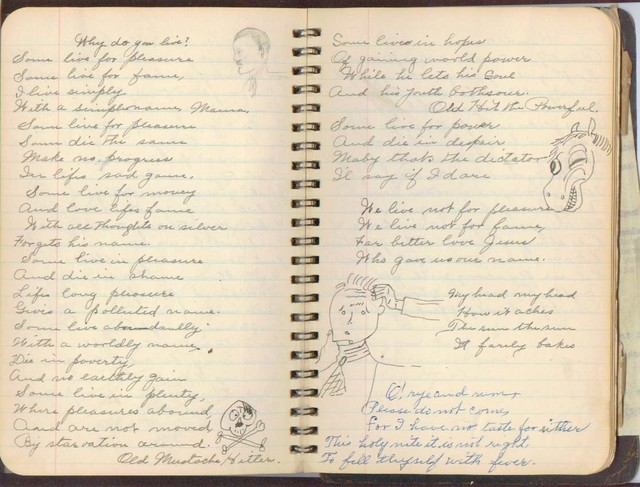 Why do you live?
Some live for pleasure
Some live for fame,
I live simply
With a simple name, Mama.
Some live for pleasure
Some die the same
Make no progress
In lifes sad game.
Some live for money
And love lifes fame
With all thoughts on silver
Forgets his name.
Some live in pleasure
And die in shame
Lifes long pleasure
Gives a polluted name.
Some live abundantly
With a worldly name,
Die in poverty,
And no earthly gain
Some live in plenty,
Where pleasures abound
And are not moved
By starvation around.
Old Mustache, Hitler.
Some lives in hopes
Of gaining world power
While he lets his soul
And his youth
Old Hit the Powerful.
Some live for power
And die in despair.
Maby thats the dictator
I'll say if I dare
We live not for pleasure
We live not for fame,
Far better love Jesus
Who gave us our name.
My head my head
How it aches
The sun the sun
It farely bakes
O! rye and rum,
Please do not come,
For I have no taste for either
This holy nite it is not right
To fill thyself with fever.